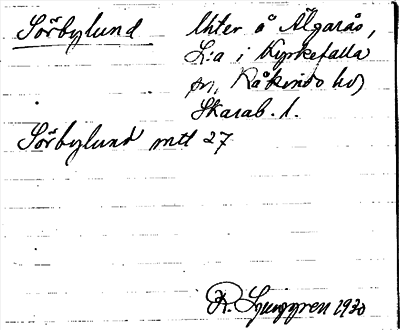 Sörbylund
Uter å Älgarås,
L:a i Kyrkefalla
sn, Kåkinds hd
Skarab. l.
Sörbylund mtl 27
R. Ljunggren 1930